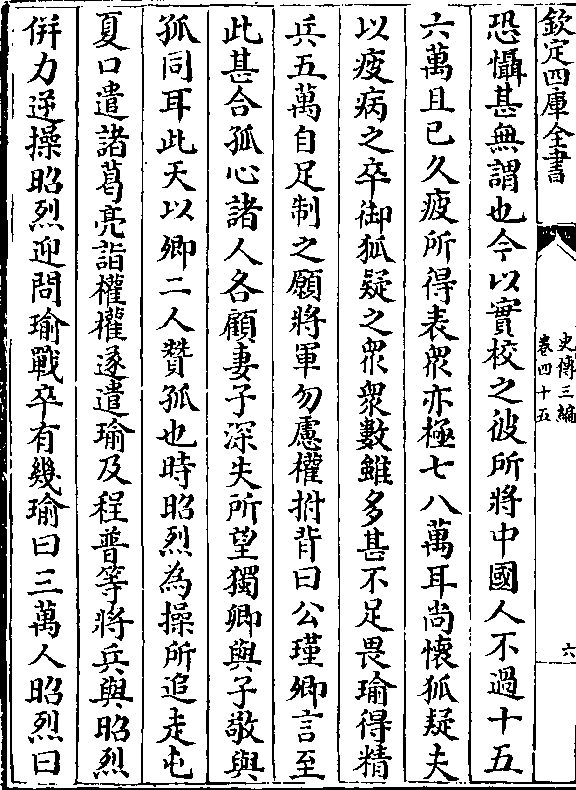 欽定四庫全書
史傳三編
卷四十五
六
恐懾甚無謂也今以實校之彼所將中國人不過十五
六萬且已久疲所得表衆亦極七八萬耳尚懷狐疑夫
以疲病之卒御狐疑之衆衆數雖多甚不足畏瑜得精
兵五萬自足制之願將軍勿慮權拊背曰公瑾卿言至
此甚合孤心諸人各顧妻子深失所望獨卿與子敬與
孤同耳此天以卿二人贊孤也時昭烈為操所追走屯
夏口遣諸葛亮詣權權遂遣瑜及程普等將兵與昭烈
併力逆操昭烈迎問瑜戰卒有幾瑜曰三萬人昭烈曰